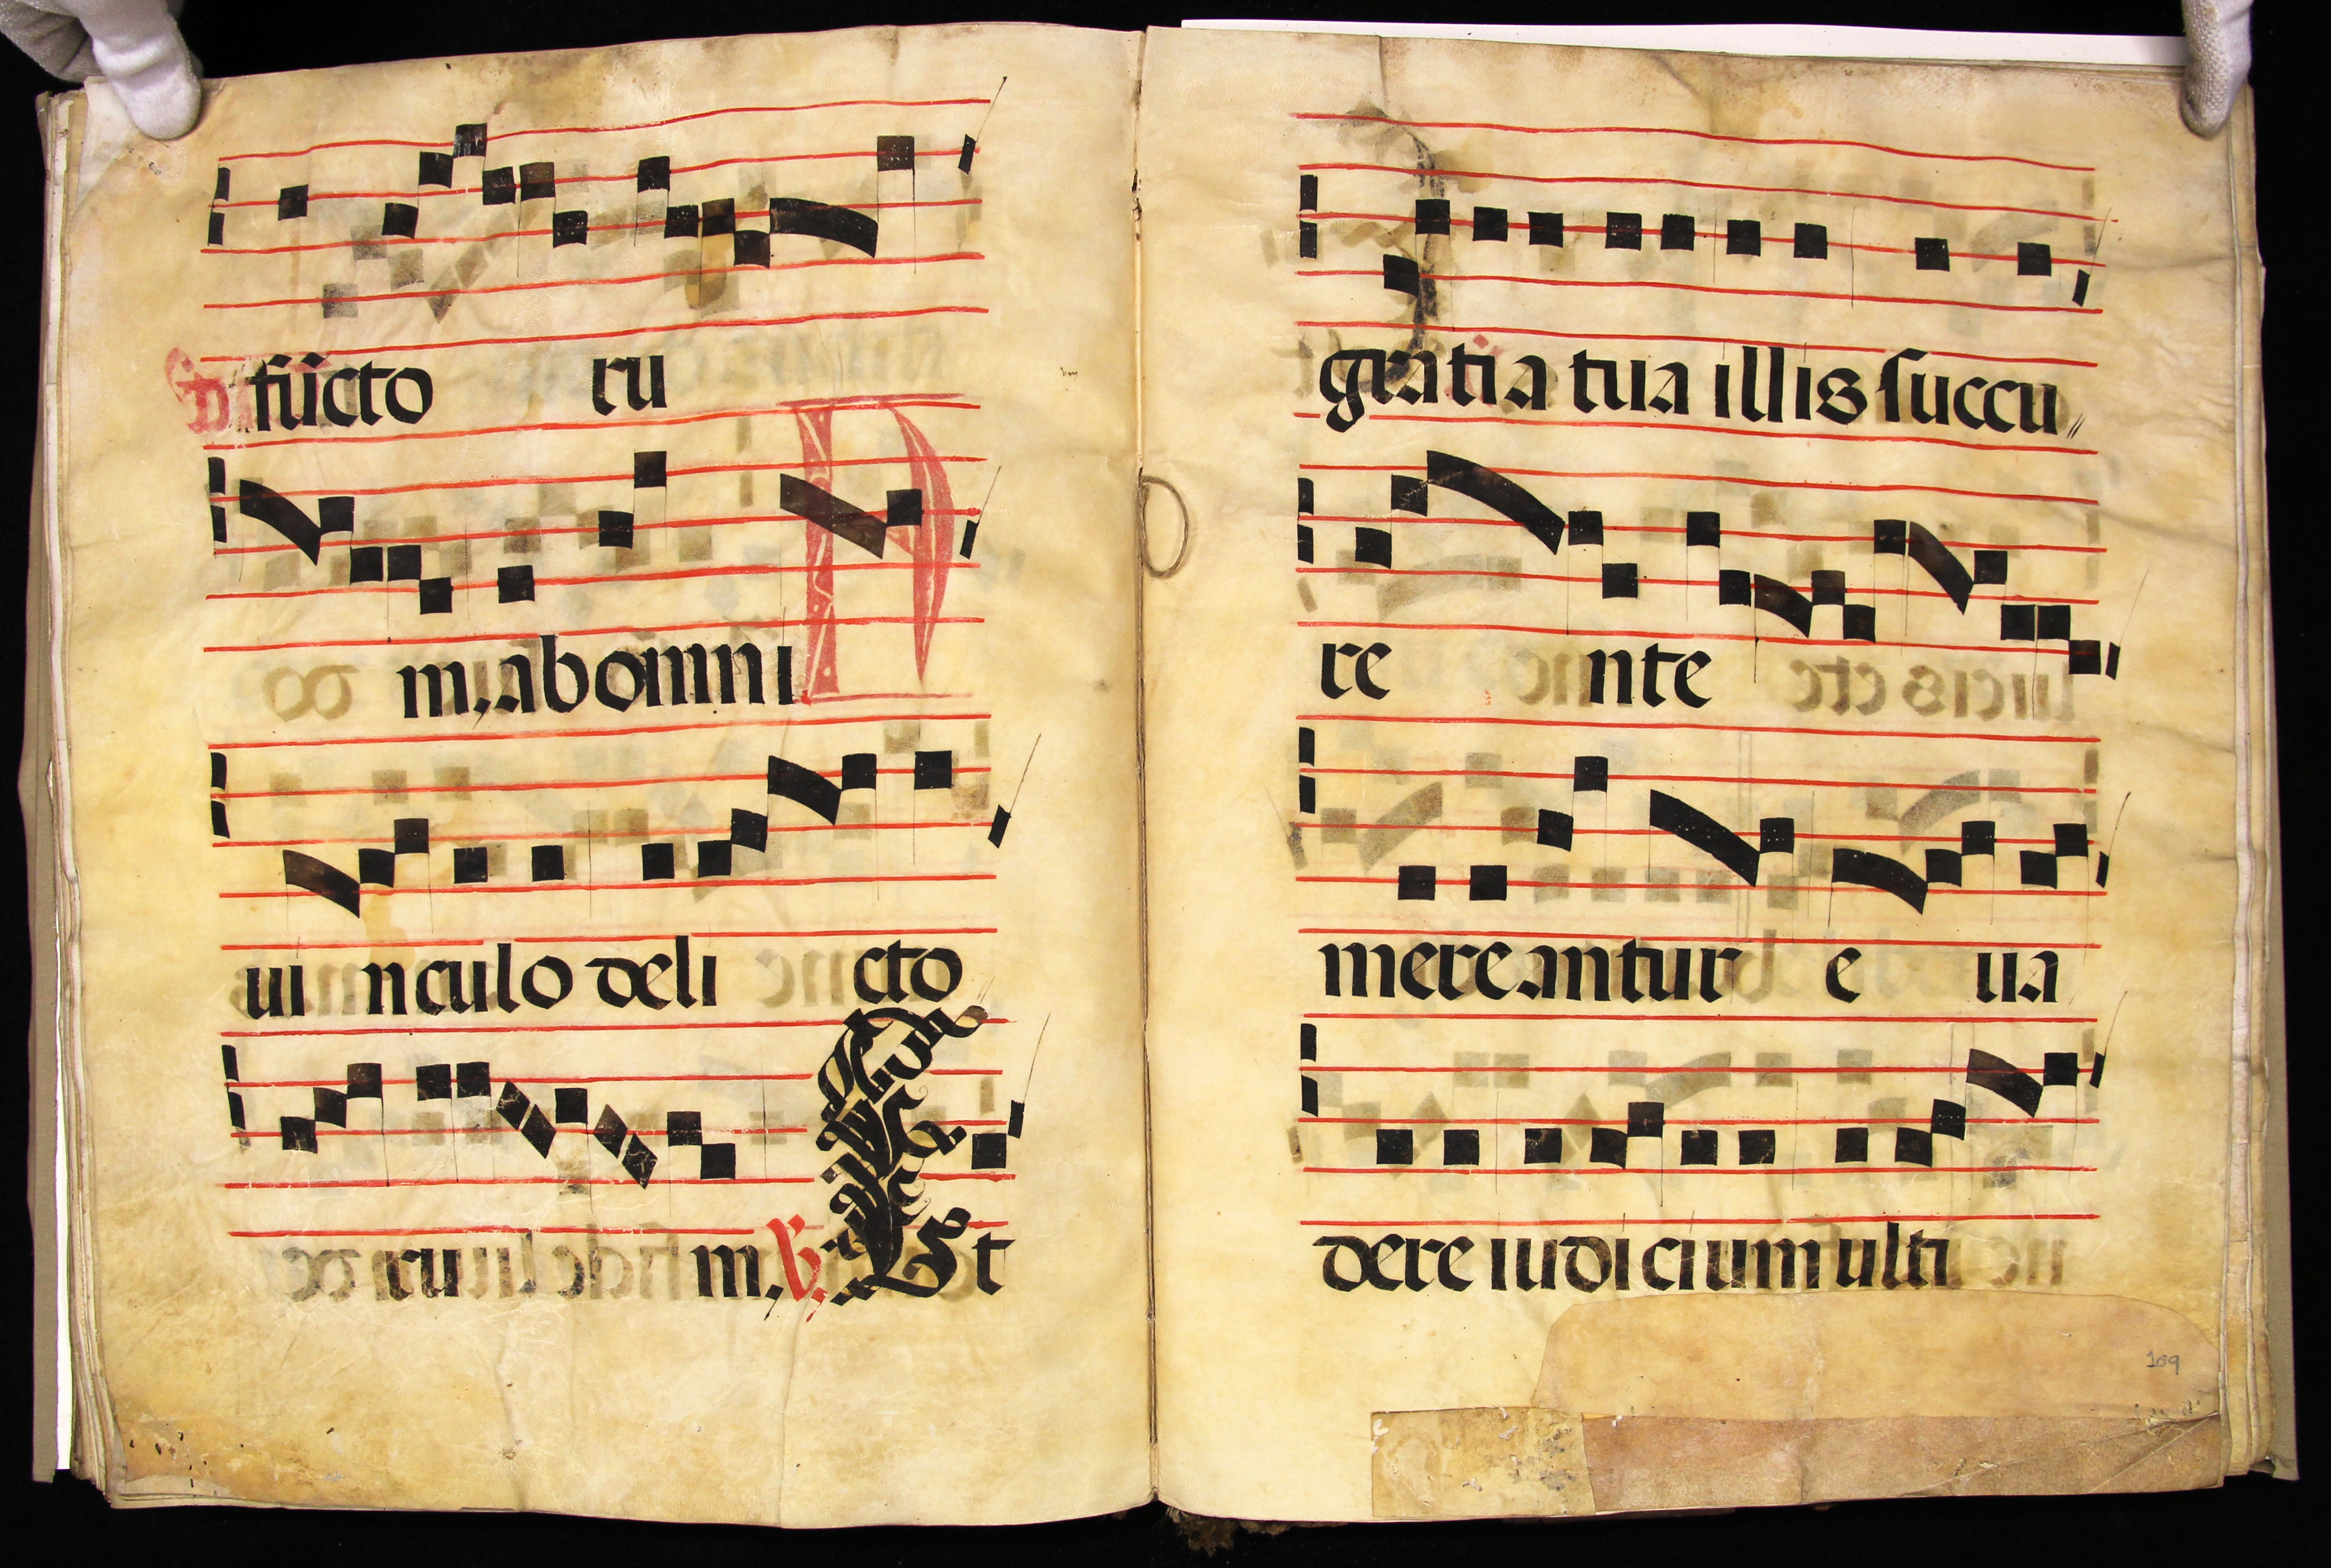 fūcto ru
m, ab omni
ui nculo deli cto
ru m. ℣. Et
gratia tua illis succu
re nte
mereantur e ua
dere iudicium ulti
109